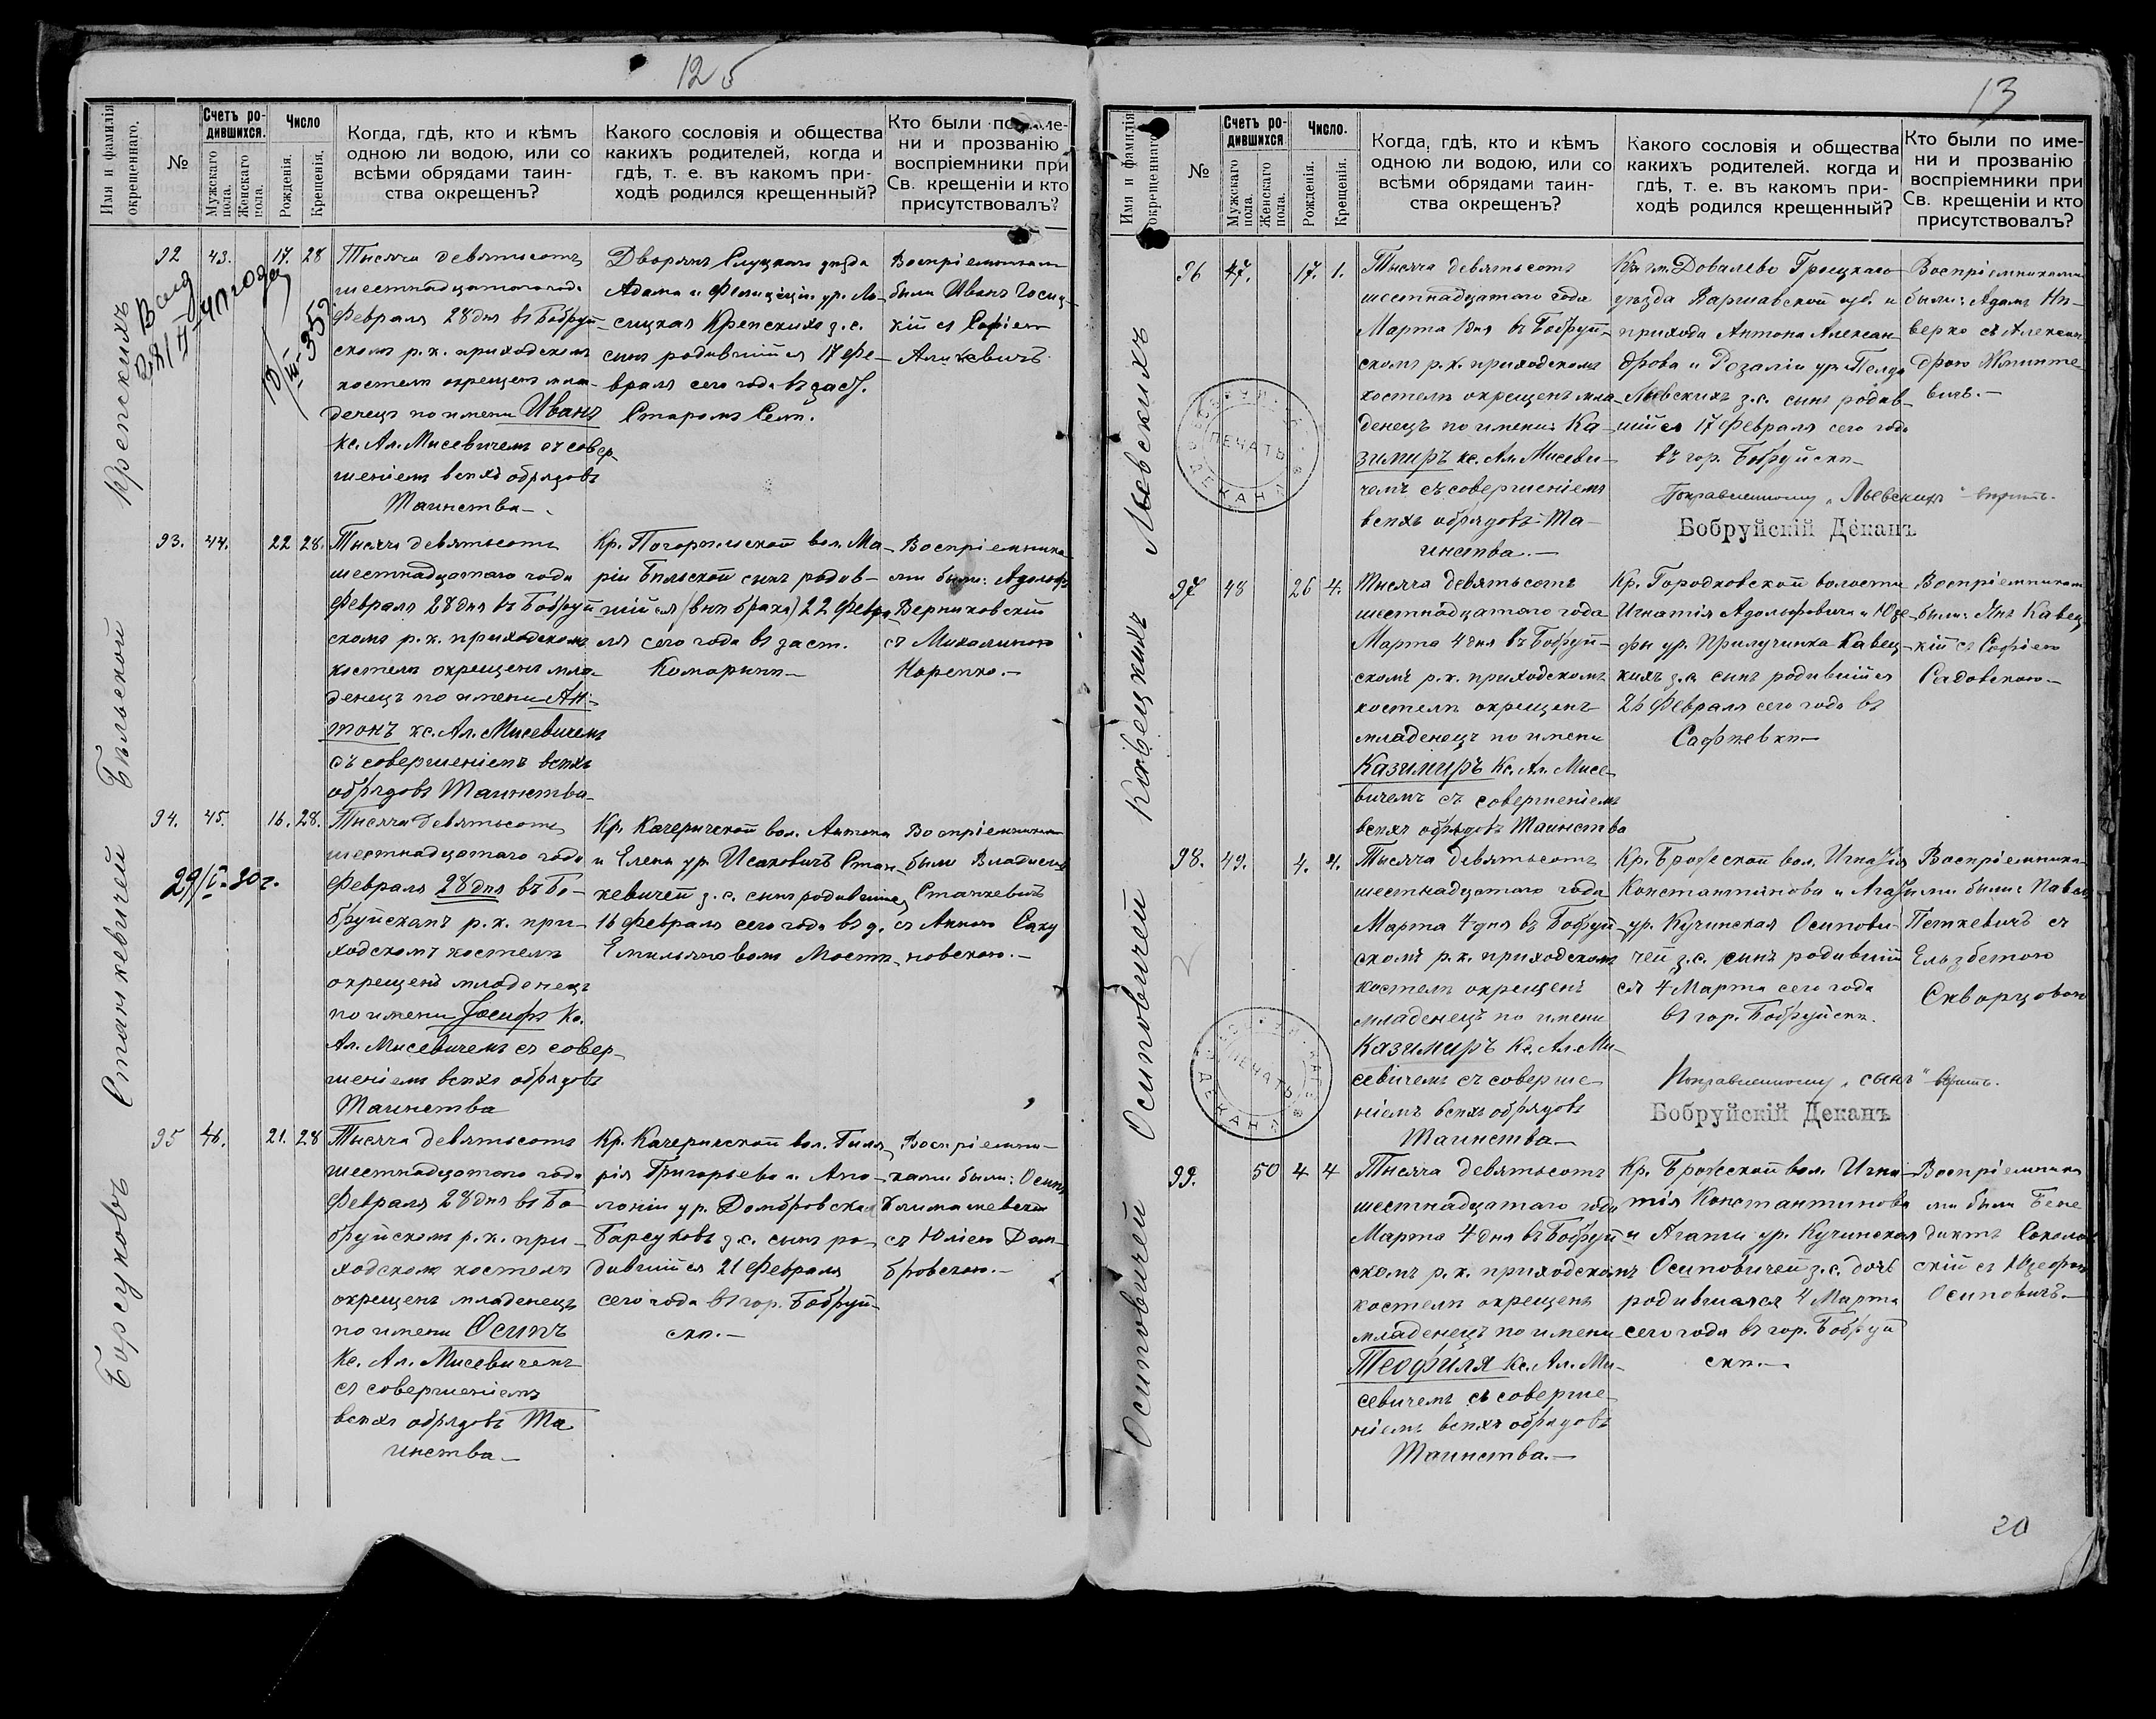 12 5
Имя и фамилія окрещеннаго.
№
Счетъ ро-
дившихся.
Мужскаго пола.
Женскаго пола.
Число
Рожденія.
Крещенія.
Когда, гдѣ, кто и кѣмъ
одною ли водою, или со
всѣми обрядами таин-
ства окрещенъ?
Какого сословія и общества
какихъ родителей, когда и
гдѣ, т. е. въ какомъ при-
ходѣ родился крещенный?
Кто были по име-
ни и прозванію
воспріемники при
Св. крещеніи и кто
присутствовалъ?
Крепскихъ
92 43. 17. 28
Тысяча девятьсотъ
шестнадцатаго года
Февраля 28 дня въ Бобруй-
скомъ р. к. приходскомъ
костелѣ окрещенъ мла-
денецъ по имени Иванъ
кс. Ал. Мисевичемъ съ совер-
шеніемъ всѣхъ обрядовъ
Таинства.
Дворянъ Слуцкаго уѣзда
Адама и Фелиціи ур. Ло-
сицкая Крепскихъ з. с.
сынъ родившійся 17 Фе-
враля сего года въ заст.
Старомъ Селѣ.
Воспріемниками
были Иванъ
кій съ Софіею
Бѣльской
93. 44. 22 28.
Тысяча девятьсотъ
шестнадцатаго года
Февраля 28 дня въ Бобруй
скомъ р. к. приходскомъ
костелѣ окрещенъ мла-
денецъ по имени Ан-
тонъ кс. Ал. Мисевичемъ
съ совершеніемъ всѣхъ
обрядовъ Таинства
Кр. Погорѣльской вол. Ма-
ріи Бѣльской сынъ родив-
шійся (внѣ брака) 22 Февра
ля сего года въ заст.
Комаринѣ
Воспріемника-
ми были: Адольфъ
Верниковскій
съ Михалиною
Карепко.
Станкевичей
94. 45. 16. 28.
29/V-30 г.
Тысяча девятьсотъ
шестнадцатаго года
Февраля 28 дня въ Бо-
бруйскомъ р. к. при-
ходскомъ костелѣ
окрещенъ младенецъ
по имени Іосифъ Кс.
Ал. Мисевичемъ съ совер-
шеніемъ всѣхъ обрядовъ
Таинства
Кр. Качеричской вол. Антона
и Елены ур. Исаковичъ Стан-
кевичей з. с. сынъ родившійся
16 Февраля сего года въ д.
Емельяновомъ Мостѣ
Воспріемниками
были Владиславъ
Станкевичъ
съ Анною Саху
новскою.
Борсуковъ
95 46. 21. 28
Тысяча девятьсотъ
шестнадцатаго года
Февраля 28 дня въ Бо-
бруйскомъ р. к. при-
ходскомъ костелѣ
окрещенъ младенецъ
по имени Осипъ
Кс. Ал. Мисевичемъ
съ совершеніемъ
всѣхъ обрядовъ Та
инства
Кр. Качеричской вол. Гиля-
рія Григорьева и Апо-
лоніи ур. Домбровская
Барсуковъ з. с. сынъ ро-
дившійся 21 Февраля
сего года въ гор. Бобруй-
скѣ.
Воспріемни-
ками были: Осипъ
съ Юліею Дом-
бровскою.
13
Имя и фамилія окрещеннаго.
№
Счетъ ро-
дившихся
Мужскаго пола.
Женскаго пола.
Число.
Рожденія.
Крещенія.
Когда, гдѣ, кто и кѣмъ
одною ли водою, или со
всѣми обрядами таин-
ства окрещенъ?
Какого сословія и общества
какихъ родителей. когда и
гдѣ, т. е. въ какомъ при-
ходѣ родился крещенный?
Кто были по име-
ни и прозванію
воспріемники при
Св. крещеніи и кто
присутствовалъ?
Льевскихъ
96 47. 17. 1.
Тысяча девятьсотъ
шестнадцатаго года
Марта 1 дня въ Бобруй-
скомъ р. к. приходскомъ
костелѣ окрещенъ мла-
денецъ по имени: Ка-
зимиръ кс. Ал. Мисеви-
чемъ съ совершеніемъ
всѣхъ обрядовъ Та-
инства.
Кр. гм. Довалево Гроецкаго
уѣзда Варшавской губ. и
прихода Антона Алексан-
дрова и Розаліи ур.
Льевскихъ з. с. сынъ родив-
шійся 17 Февраля сего года
въ гор. Бобруйскѣ
Поправленному „Льевскихъ" вѣрить.
Бобруйскій Деканъ
Воспріемниками
были: Адамъ Ни-
верко съ Алексан
дрою
вичъ.
ПЕЧАТЬ
Кавецкихъ
97 48 26 4.
Тысяча девятьсотъ
шестнадцатаго года
Марта 4 дня въ Бобруй-
скомъ р. к. приходскомъ
костелѣ окрещенъ
младенецъ по имени
Казимиръ Кс. Ал. Мисе-
вичемъ съ совершеніемъ
всѣхъ обрядовъ Таинства
Кр. Городковской волости
Игнатія Адольфовича и Юзе-
фы ур. Прилучинка Кавец-
кихъ з. с. сынъ родившійся
26 Февраля сего года въ
Сафѣевкѣ
Воспріемниками
были: Янъ Кавец
кій съ Софіею
Садовскою.
Осиповичей
98. 49. 4. 4.
Тысяча девятьсотъ
шестнадцатаго года
Марта 4 дня въ Бобруй
скомъ р. к. приходскомъ
костелѣ окрещенъ
младенецъ по имени
Казимиръ Кс. Ал. Ми-
севичемъ съ соверше-
ніемъ всѣхъ обрядовъ
Таинства.
Кр. Брожской вол. Игнатія
Константинова и Агаты
ур. Кучинская Осипови-
чей з. с. сынъ родившій
ся 4 Марта сего года
въ гор. Бобруйскѣ.
Поправленному „сынъ" вѣрить.
Бобруйскій Деканъ
Воспріемника-
ми были: Павелъ
Петкевичъ съ
Ельзбетою
Скворцовою
ПЕЧАТЬ
Осиповичей
99. 50 4 4
Тысяча девятьсотъ
шестнадцатаго года
Марта 4 дня въ Бобруй
скомъ р. к. приходскомъ
костелѣ окрещенъ
младенецъ по имени
Теофиля Кс. Ал. Ми-
севичемъ съ соверше-
ніемъ всѣхъ обрядовъ
Таинства.
Кр. Брожской вол. Игна-
тія Константинова
и Агаты ур. Кучинская
Осиповичей з. с. дочь
родившаяся 4 Марта
сего года въ гор. Бобруй
скѣ.
Воспріемника
ми были Бене
диктъ Соколов
скій съ Юзефою
Осиповичъ.
20